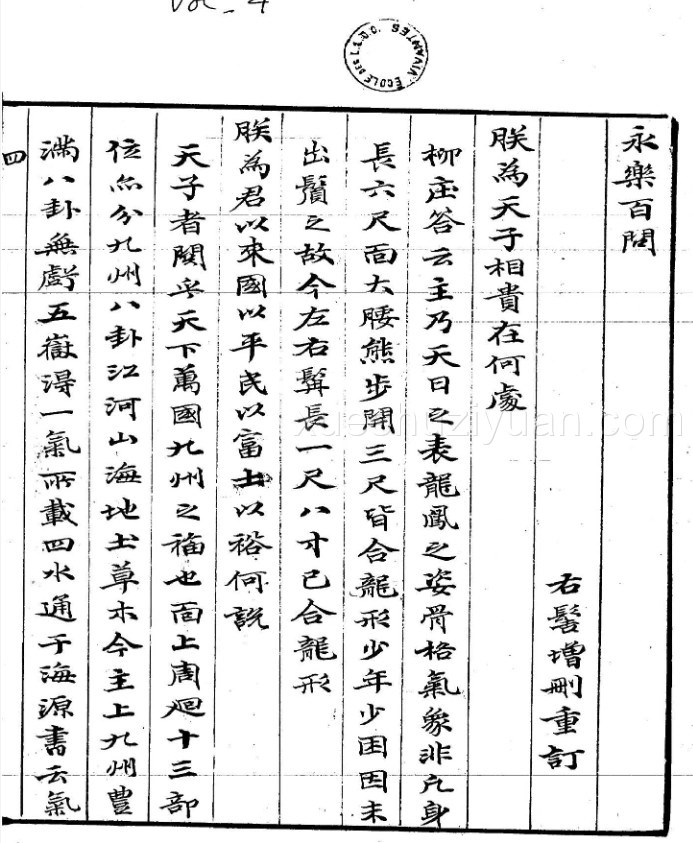 Vol - 4
ECOLE DES L.S.D.D.
永樂百問
右髻增刪重訂
朕為天子相貴在何處
柳庄答云主乃天日之表龍鳳之姿骨格氣象非凡身
長六尺面大腰熊步開三尺皆合龍形少年少困因未
出鬚之故今左右髯長一尺八寸已合龍形
朕為君以來國以平民以富士以裕何説
天子者關乎天下萬國九州之福也面上周廻十三部
位亦分九州八卦江河山海地土草木今主上九州豊
滿八卦無虧五嶽淂一氣所載四水通于海源書云氣
四
xueshuziyuan.com